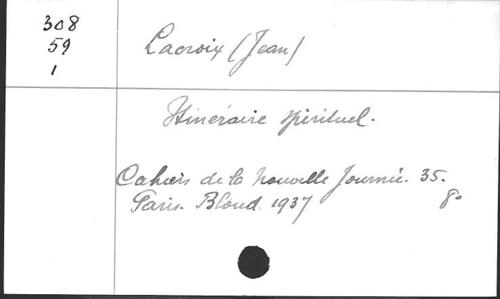 308
59
1
Lacroix (Jean)
Itinéraire spirituel.
Cahiers de la nouvelle Journée. 35.
Paris. Bloud. 1937 8°